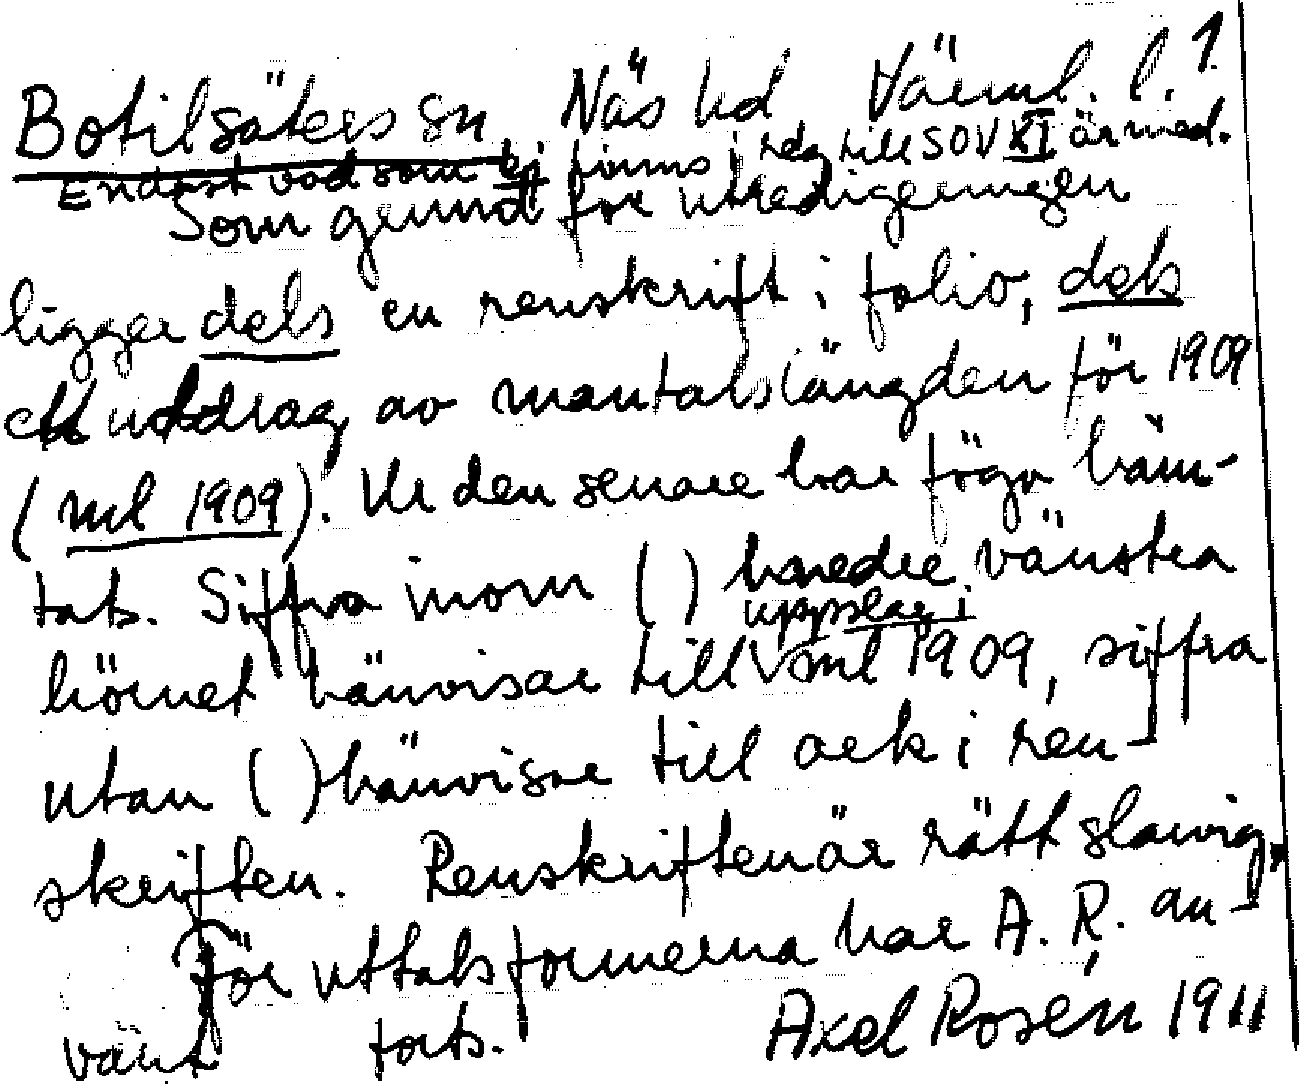 Botilsäters sn, Näs hd Värml. l. 1
Endast vad som ej finns i reg till SOV XI är med.
Som grund för utredigeringen
ligger dels en renskrift i folio, dels
ett utdrag av mantalslängden för 1909
(ml 1909). Ur den senare har föga häm-
tats. Siffra inom ( ) höredre vänstra
uppslag i
hörnet hänvisar till V ml 1909, siffra
utan ( ) hänvisar till ark i ren-
skriften. Renskriften är rätt slarvig.
För uttalsformerna har A. R. an-
vänt forts. Axel Rosén 1911